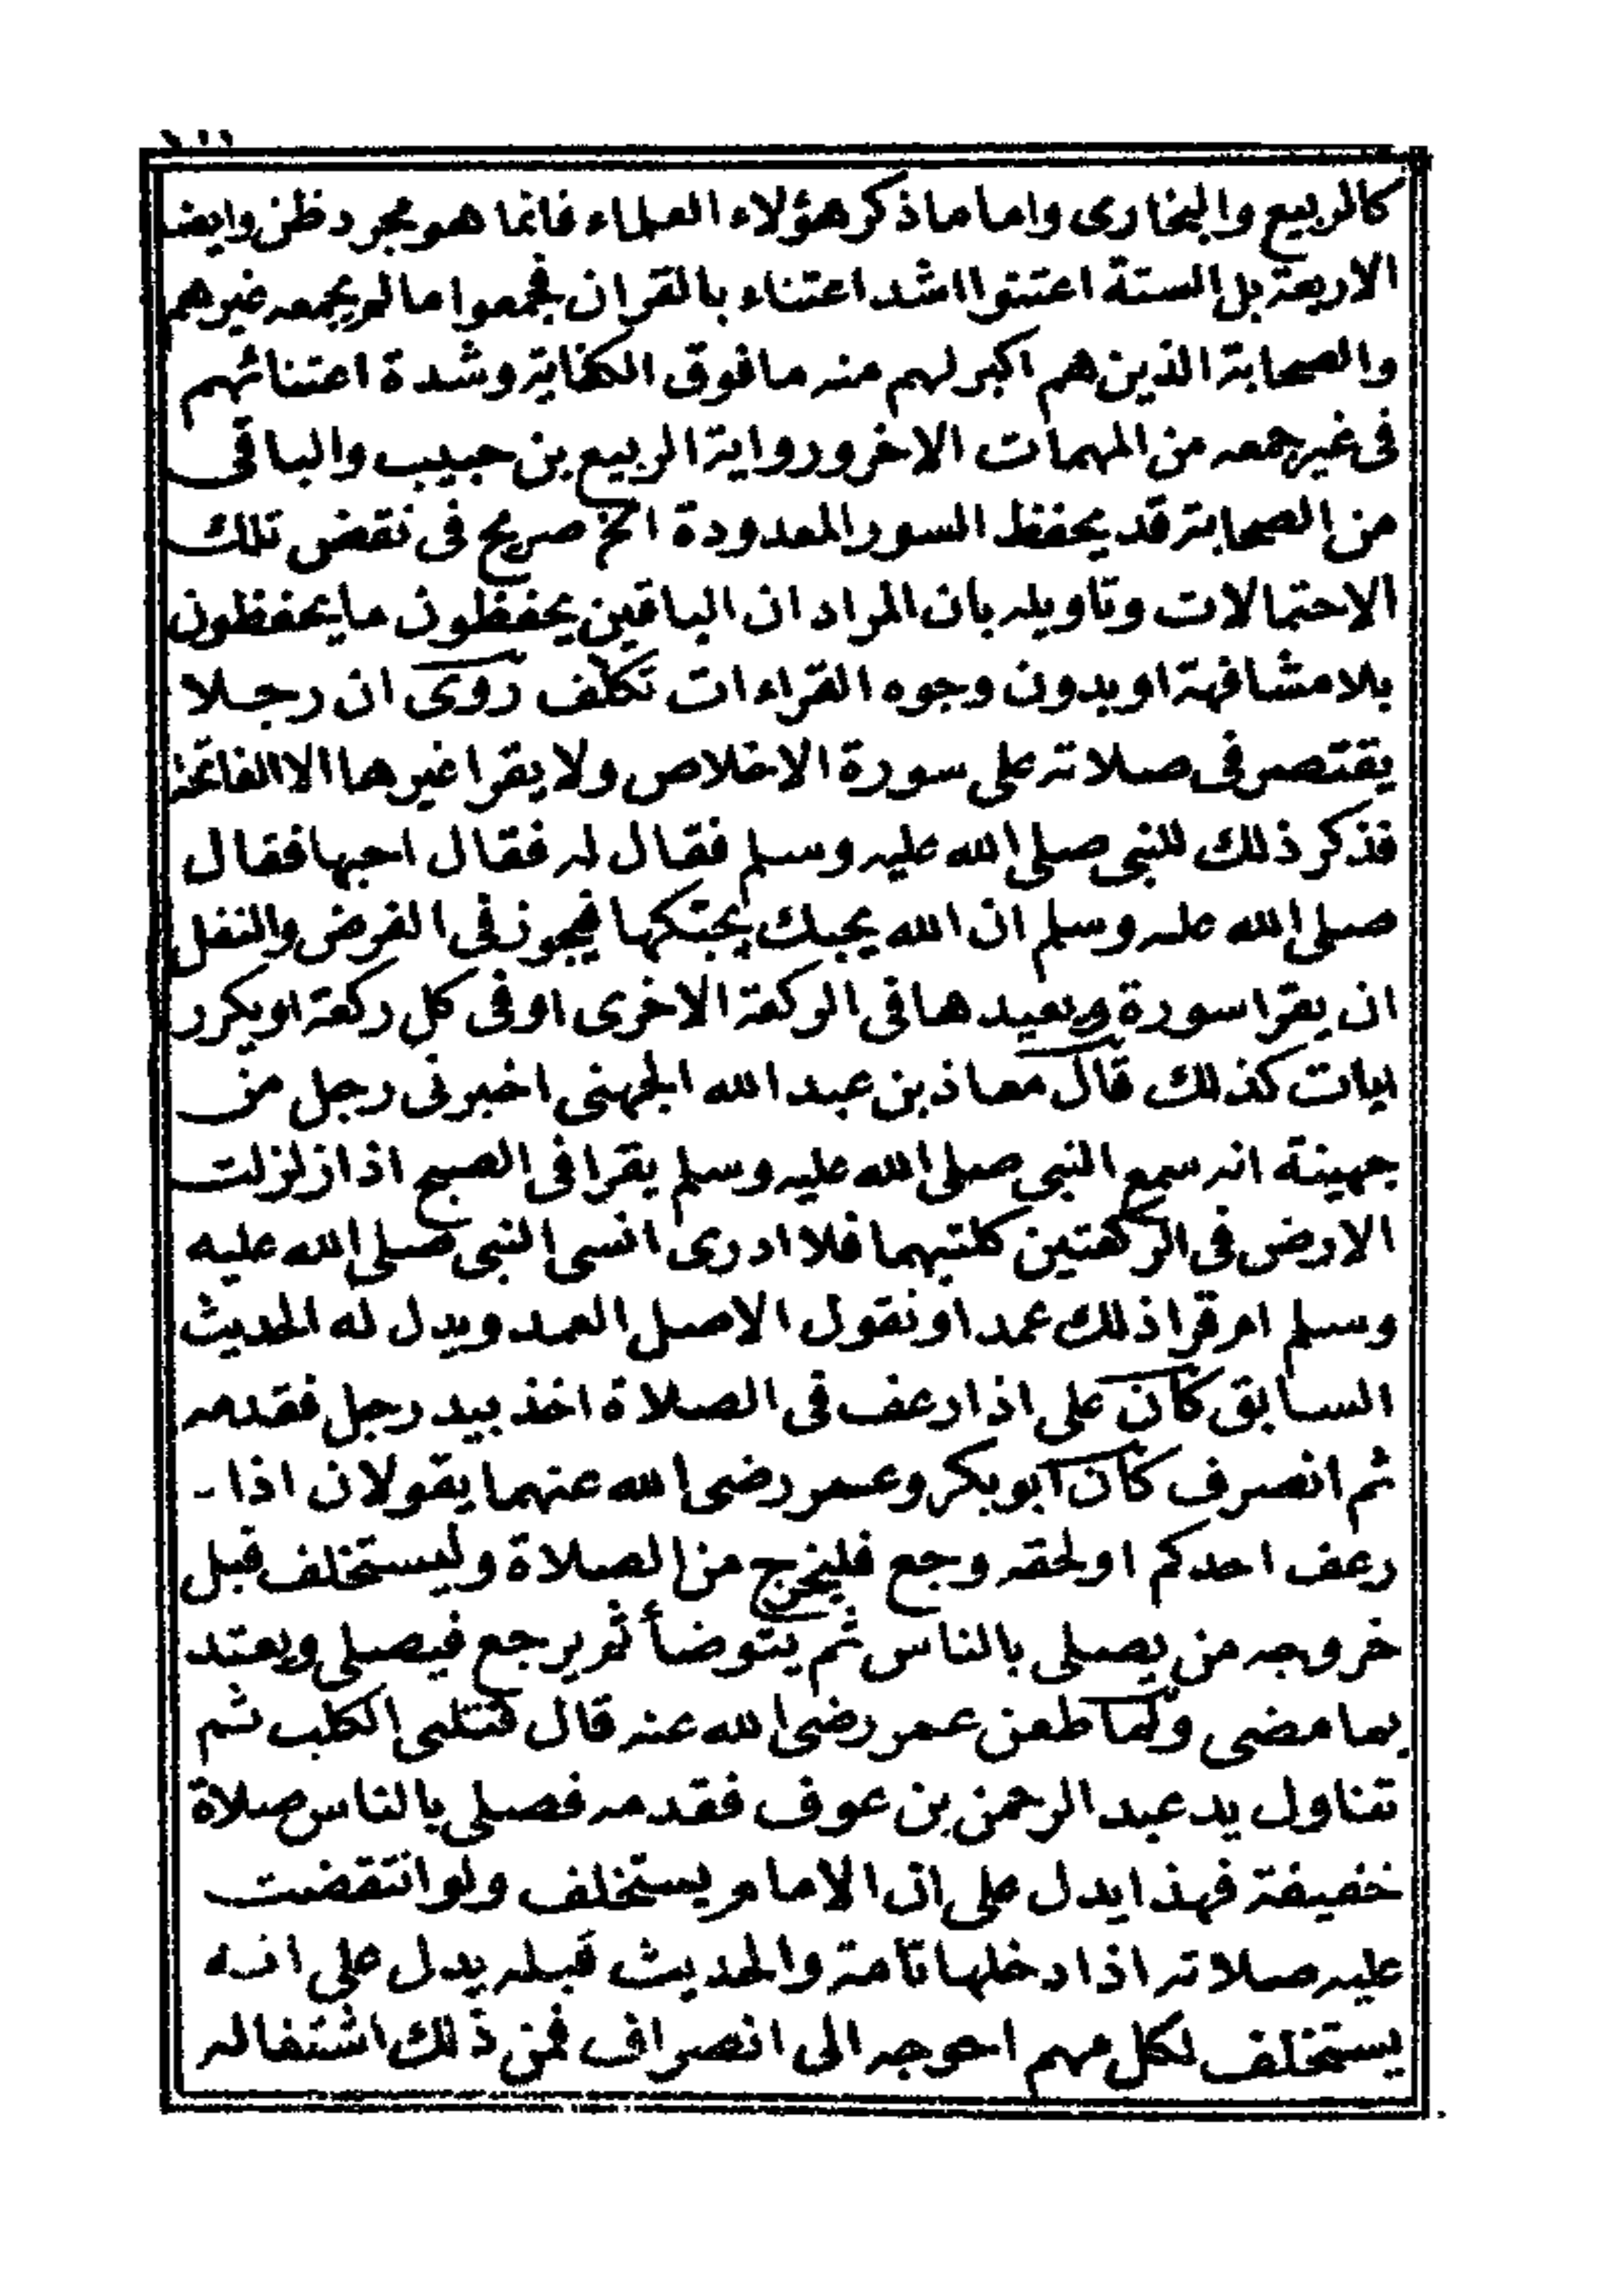 كالربيع والبخارى واما ما ذكر هؤلاء العلماء فانما هو مجرد ظن وايضا
الاربعة بل الستة اعتنوا اشد اعتناء بالقران فجمعوا ما لم يجمعه غيرهم
والصحابة الذين هم اكبر لهم منه ما فوق الكفاية وشدة اعتنائهم
فى غير جمعه من المهمات الاخر ورواية الربيع بن حبيب والباقى
من الصحابة قد يحفظ السور المعدودة الخ صريح فى نقض تلك
الاحتمالات وتاويله بان المراد ان الباقين يحفظون ما يحفظون
بلا مشافهة او بدون وجوه القراءات تكلف روى ان رجلا
يقتصر فى صلاته على سورة الاخلاص ولا يقرا غيرها الا الفاتحة
فذكر ذلك للنبى صلى الله عليه وسلم فقال له فقال احبها فقال
صلى الله عليه وسلم ان الله يحبك بحبكها فيجوز فى الفرض والنفل
ان يقرا سورة ويعيدها فى الركعة الاخرى او فى كل ركعة او يكرر
ايات كذلك قال معاذ بن عبد الله الجهنى اخبرنى رجل من
جهينة انه سمع النبى صلى الله عليه وسلم يقرا فى الصبح اذا زلزلت
الارض فى الركعتين كلتيهما فلا ادرى انسى النبى صلى الله عليه
وسلم ام قرا ذلك عمدا ونقول الاصل العمد ويدل له الحديث
السابق كان على اذا رعف فى الصلاة اخذ بيد رجل فقدمه
ثم انصرف كان ابو بكر وعمر رضى الله عنهما يقولان اذا -
رعف احدكم او لحقه وجع فليخرج من الصلاة وليستخلف قبل
خروجه من يصلى بالناس ثم يتوضأ ثم يرجع فيصلى ويعتد
بما مضى ولما طعن عمر رضى الله عنه قال قتلنى الكلب ثم
تناول يد عبد الرحمن بن عوف فقدمه فصلى بالناس صلاة
خفيفة فهذا يدل على ان الامام يستخلف ولو انتقضت
عليه صلاته اذا دخلها تامة والحديث قبله يدل على انه
يستخلف لكل مهم احوجه الى انصراف فمن ذلك اشتغاله